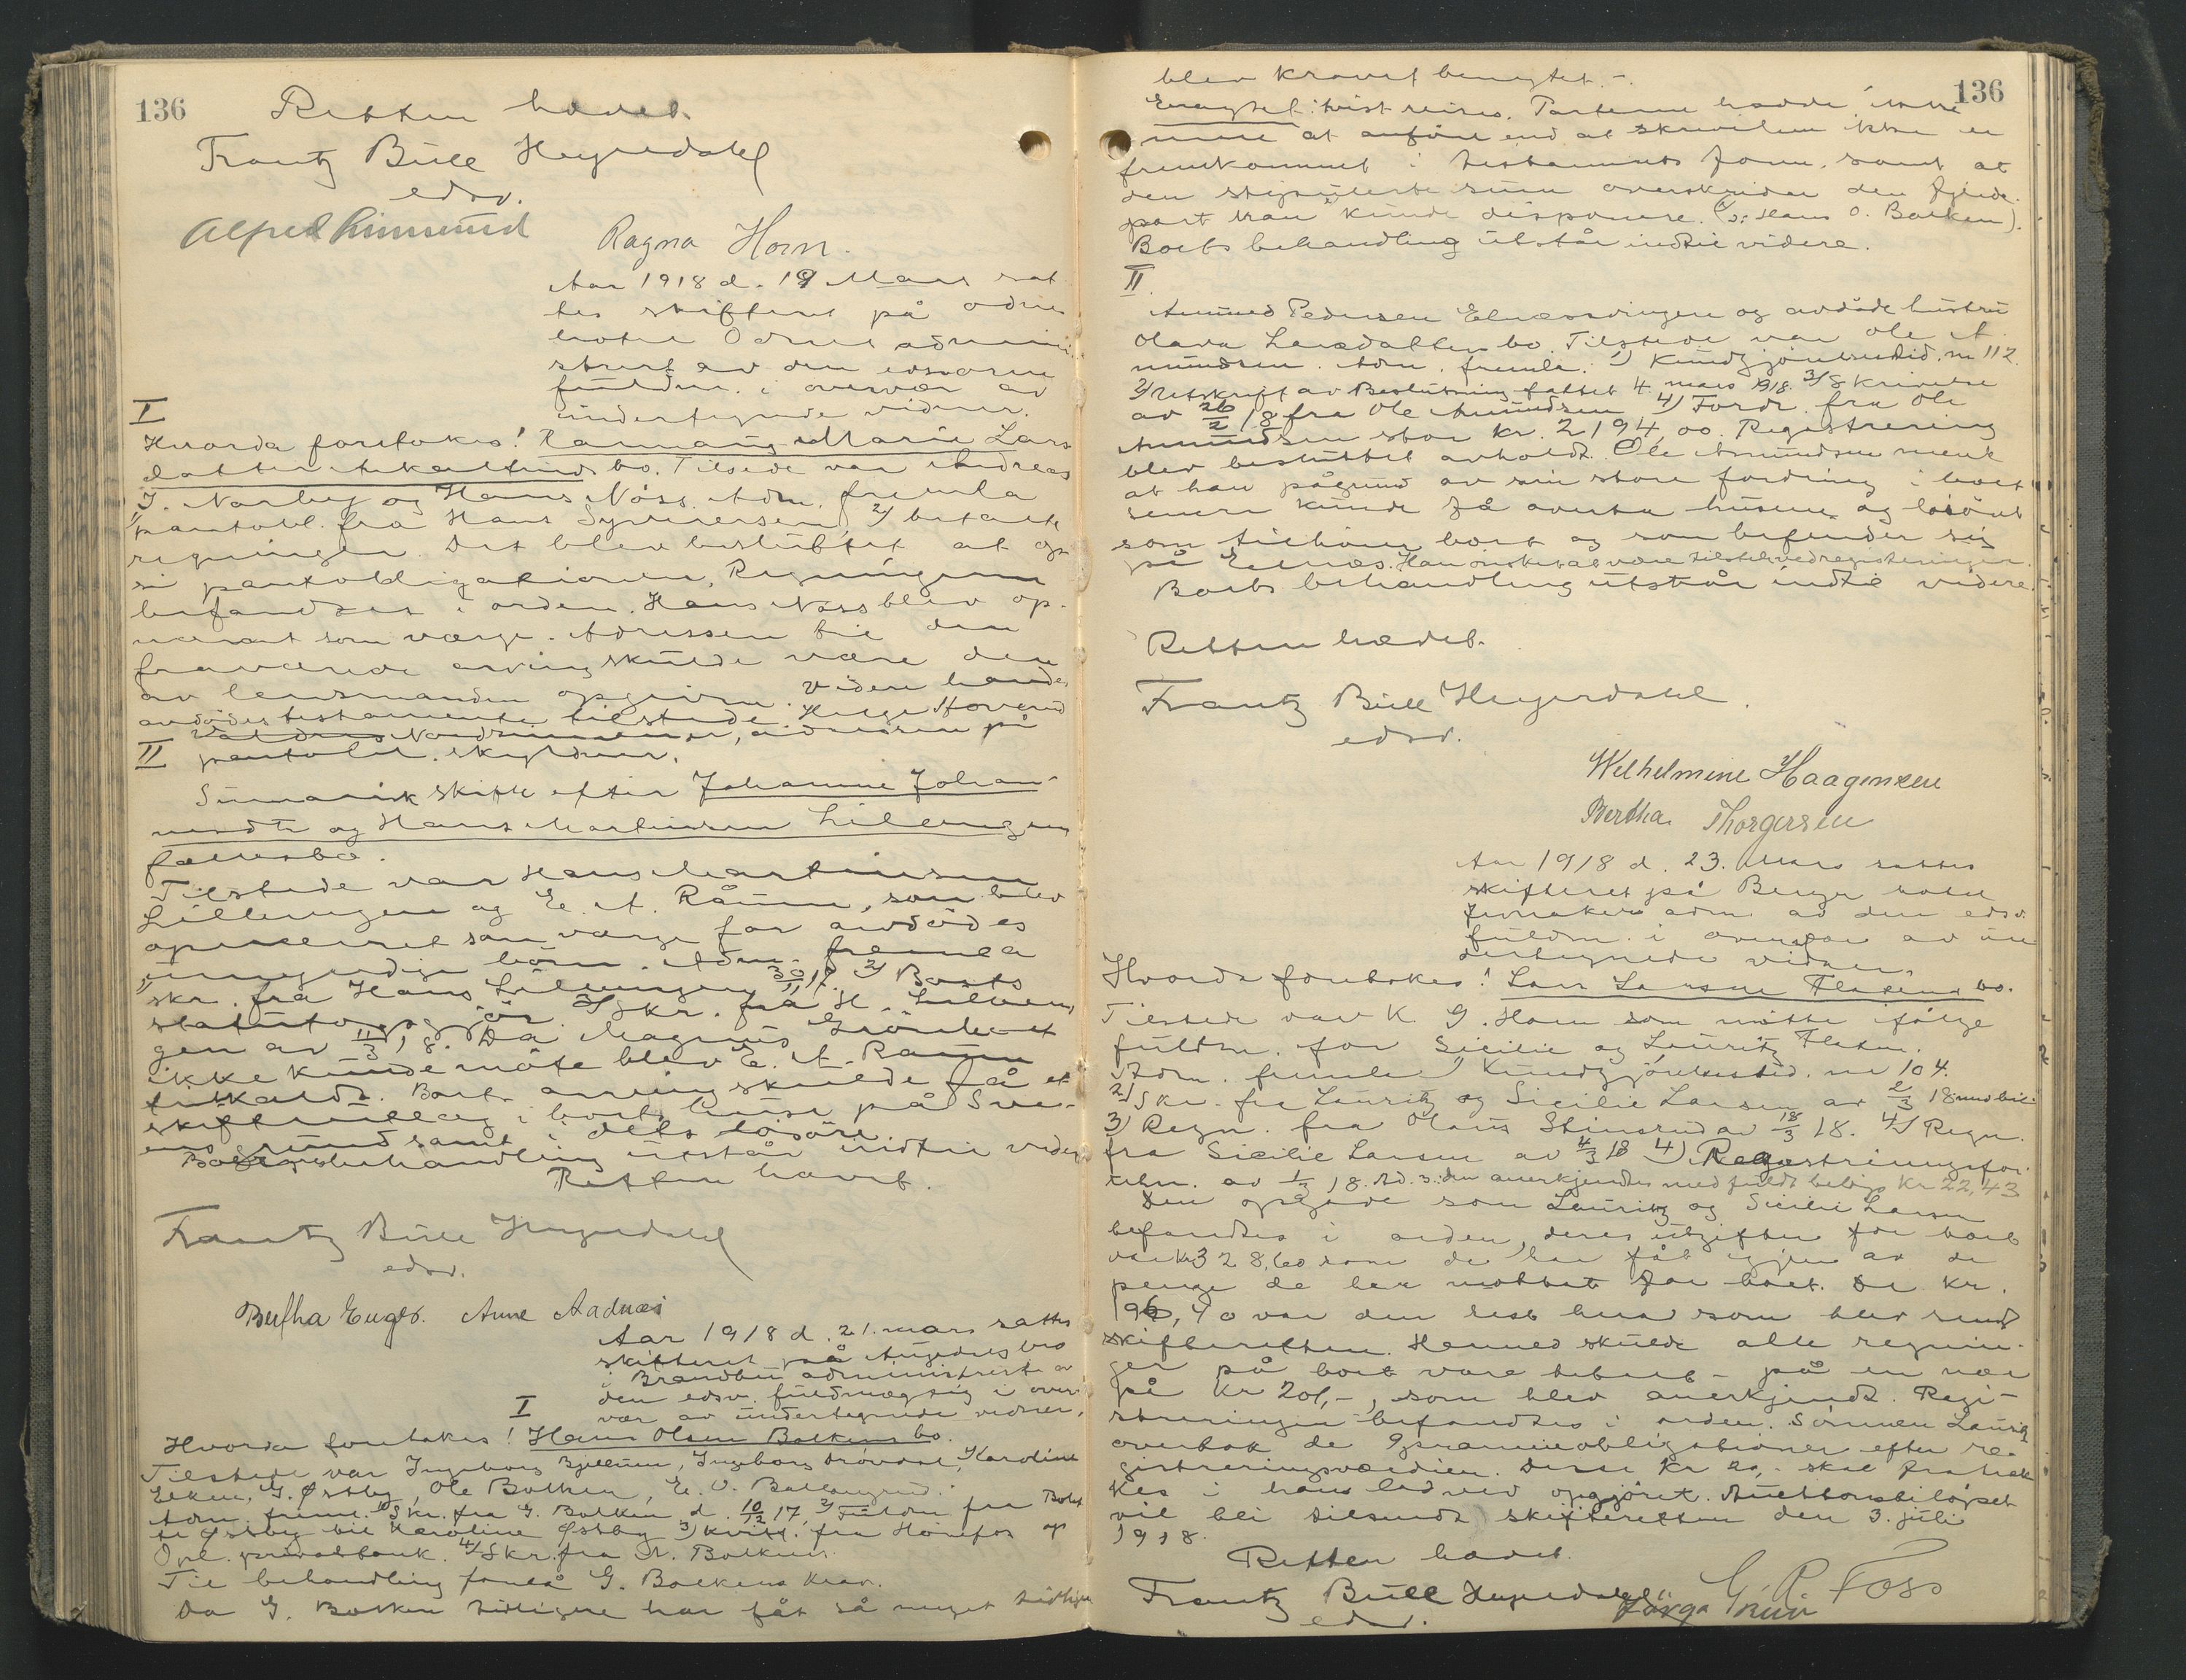 136
Retten hævet.
Frantz Bull Heyerdahl
edsv.
Alfred Rimsrud
Ragna Horn.
Aar 1918 d. 19 Mars sat
tes skifteret på odnes
hotel Odnes admini
strert av den edsvorne
fuldm. i overvær av
undertegnede vidner.
I
Hvorda foretokes! Marie Lars
datter bo. Tilstede var Andreas
J. Narby og Hans Näss. Adm. fremla
1) pantobl. fra Hans Syversen, 2) betalte
regninger. Det blev besluttet at op
si pantobligationen, Regningerne
befandtes i orden. Hans Näss blev op-
nævnt som værge. Adressen til den
fraværende arving skulde være den
av lensmanden opgivne. Videre
avdødes testamente tilstede. Helge
adressen på
II pantobl. skyldner.
Summarisk skifte efter Johanne Johan-
nesdtr og Hans Martinsen Lilleengens
fællesbo.
Tilstede var Hans Martinsen
Lilleengen og E. A. Råum, som blev
opnævnt som værge for avdødes
umyndige børn. Adm. fremla
1) skr. fra Hans Lilleengen 30/11 17. 2) Boets
status opgjör. 3) Skr. fra H. Lilleen
gen av 11/3 18. Da Magnus
ikke kunde møte blev E. A. Råum
tilkaldt. Boets arving skulde få et
skifteutlæg i boets huse på
grund samt i dets løsøre.
Boets behandling utstår indtil videre
Retten hævet.
Frantz Bull Heyerdahl
edsv.
Bertha Enger. Anne Aadnæs
Aar 1918 d. 21. mars sattes
skifteret på Augedals bro
i Brandbu administrert av
den edsv. fuldmægtig i over-
vær av undertegnede vidner.
I
Hvorda foretokes! Hans Olsen Bolkens bo.
Tilstede var Ingeborg Bjellum, Ingeborg Karoline
G. Østby, Ole Bolken, E. O.
Adm. freml. 1) Skr. fra G. Bolken d. 10/12 17, 2) Fuldm. fra
Østby til Karoline Østby 3) kvitt. fra Hønefos og
Opl. privatbank. 4) Skr. fra A. Bolken.
Til behandling forelå G. Bolkens krav.
Da G. Bolken tidligere har fåt så meget
136
blev kravet benegtet.-
Eragtet: tvist reises. Parterne hadde ikke
mere at anføre end at skrivelsen ikke er
fremkommet i testaments form, samt at
den stipulerte sum overskrider den fjerde-
part man kunde disponere. (: Hans O. Bolken).
Boets behandling utstår indtil videre.
II.
Amund Pedersen Elnæssvingen og avdöde hustru
Olava Larsdatters bo. Tilstede var Ole A
mundsen. Adm. fremla. 1) Kundgjörelsestid. nr 112.
2) Utskrift av Beslutning fattet 4. mars 1918. 3) Skrivelse
av 26/2 18 fra Ole Amundsen 4) Fordr. fra Ole
Amundsen stor kr. 2194,00. Registrering
blev besluttet avholdt. Ole Amundsen mente
at han pågrund av sin store fordring i boet
senere kunde få overta husene og løsöret
som tilhører boet og som befinder sig
på Elnæs. Han ønsket at være tilstede ved registreringen.
Boets behandling utstår indtil videre.
Retten hævet.
Frantz Bull Heyerdahl.
edsv.
Welhelmine Haagensen
Bertha Thorgersen
Aar 1918 d. 23. Mars sattes
skifteret på Berger hotel
Jevnaker adm. av den edsv.
fuldm. i overvær av un
dertegnede vidner.
Hvorda foretokes! Lars Larsen Flatens bo.
Tilstede var K. G. Horn som møtte ifølge
fuldm. for Sicilie og Lauritz Flaten.
Adm. fremla 1) Kundgjörelsestid. nr 104.
2) Skr. fra Lauritz og Sicilie Larsen av 2/3 18 med bil.
3) Regn. fra Olaus Stensrud av 18/3 18. 4) Regn.
fra Sicilie Larsen av 4/3 18 4) Registreringsfor-
retn. av 1/3 18. Ad. 3: den anerkjendtes med fuldt beløp kr 22,43
Den opgave som Lauritz og Sicilie Larsen
befandtes i orden, deres utgifter for boet
var kr 328,60 som de har fåt igjen av de
penge de har mottat for boet. De kr.
196,40 var den rest herav som blev sendt
skifteretten. Hermed skulde alle regnin-
ger på boet være betalt - på en nær
på kr 201,-, som blev anerkjendt. Regi-
streringen befandtes i orden. Sønnen Lauritz
overtok de 9 præmieobligationer efter re-
gistreringsværdien. Disse kr 20,- skal fratræk
kes i hans lod ved opgjöret. Auktionsbeløpet
vil bli tilsendt skifteretten den 3. juli
1918.
Retten hævet.
Frantz Bull Heyerdahl
edsv.
G. R. Foss